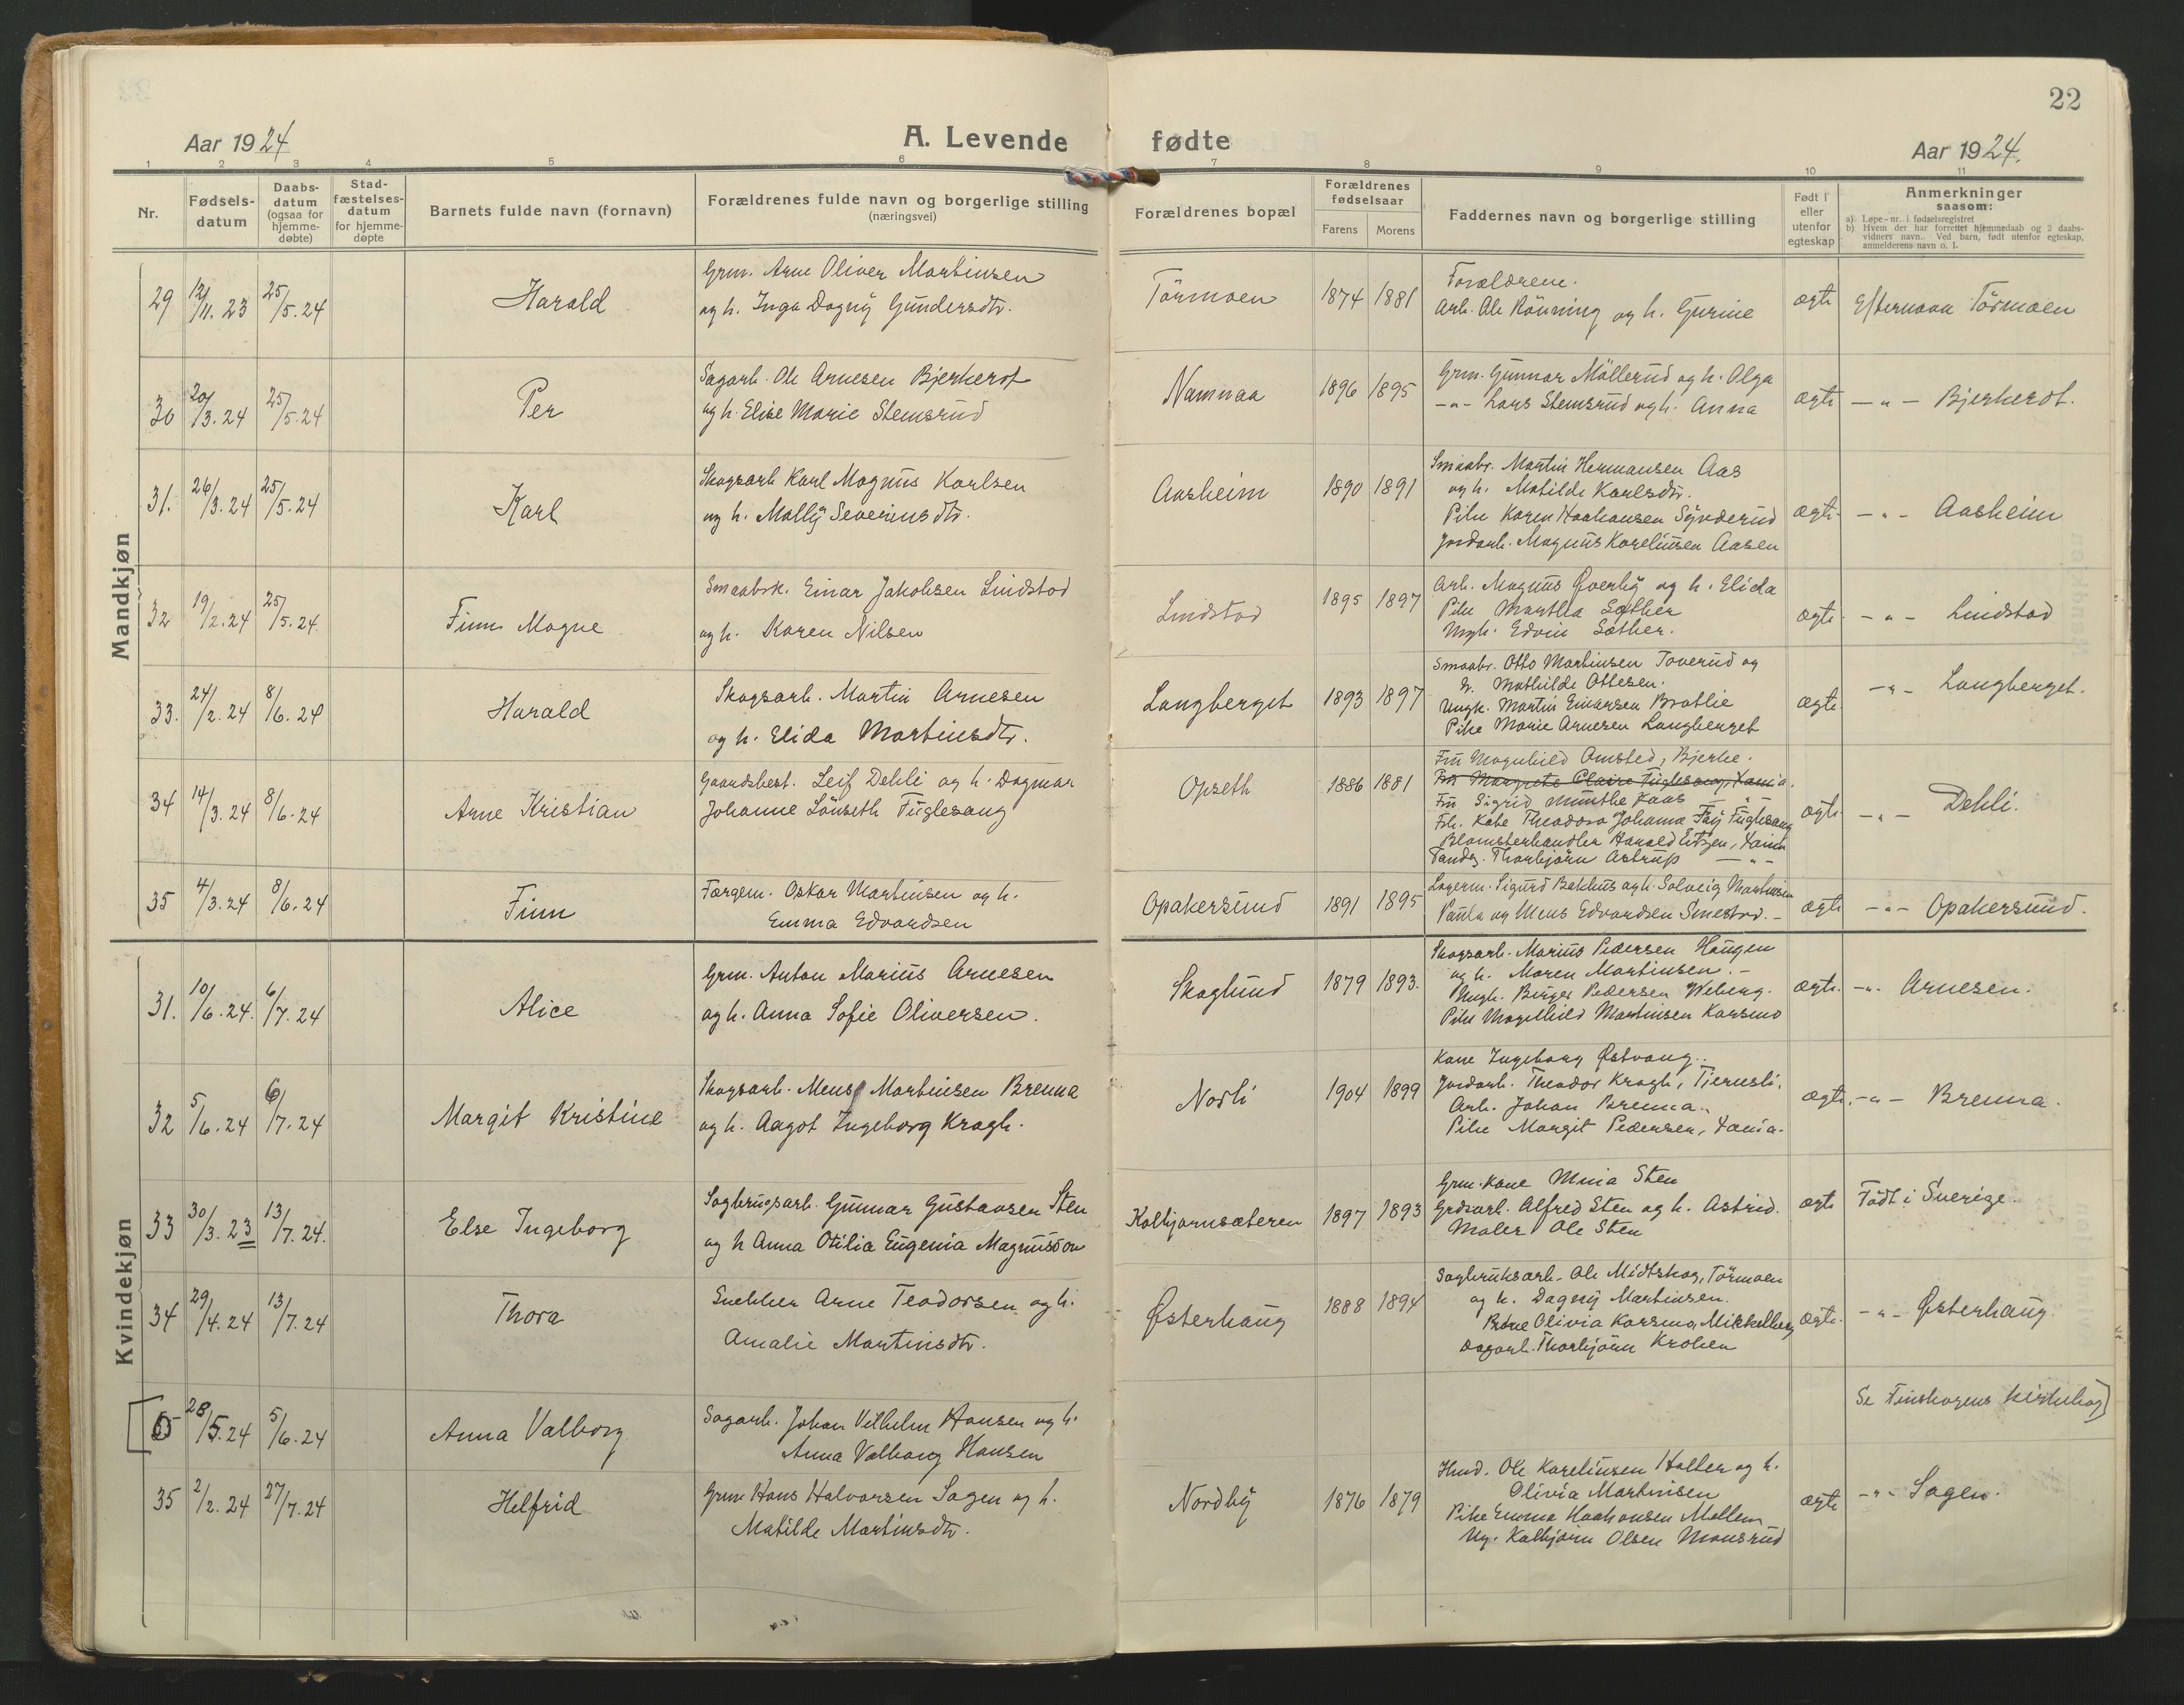 22
Aar 1924
A. Levende fødte
Aar 1924.
1 2 3 4 5 6 7 8 9 10 11
Nr.
Fødsels-
datum
Daabs-
datum
(ogsaa for
hjemme-
døbte)
Stad-
fæstelses-
datum
for hjemme-
døpte
Barnets fulde navn (fornavn)
Forældrenes fulde navn og borgerlige stilling
(næringsvei)
Forældrenes bopæl
Forældrenes
fødselsaar
Farens Morens
Faddernes navn og borgerlige stilling
Født i
eller
utenfor
egteskap
Anmerkninger
saasom:
a) Løpe-nr. i fødselsregistret
b) Hvem der har forrettet hjemmedaab og 2 daabs-
vidners navn. Ved barn, født utenfor egteskap,
anmelderens navn o. l.
Mandkjøn
29 12/11. 23 25/5. 24 Harald
Grm. Arne Oliver Martinsen
og h. Inga Dagny Gundersdtr.
Törmoen 1874 1881
Forældrene.
Arb. Ole Rönning og h. Gurine
ægte Efternavn Törmoen
30 20/3. 24 25/5.24 Per
Sagarb. Ole Arnesen Bjerkerot
og h. Elise Marie Stemsrud
Namnaa 1896 1895
Grm. Gunnar Möllerud og h. Olga
-"- Lars Stemsrud og h. Anna
ægte -"- Bjerkerot.
31. 26/3. 24 25/5. 24 Karl
Skogsarb Karl Magnus Karlsen
og h. Molly Severinsdtr.
Aasheim 1890 1891
Smaabr. Martin Hermansen Aas
og h. Matilde Karlsdtr.
Pike Karen Haakonsen Synderud
Jordarb. Magnus Karelinsen Aasen
ægte -"- Aasheim
32 19/2. 24 25/5. 24. Finn Magne
Smaabrk. Einar Jakobsen Lindstad
og h. Karen Nilsen
Lindstad 1895 1897
Arb. Magnus Överby og h. Elida
Pike Martha Sæther
Ungk. Edvin Sæther.
ægte -"- Lindstad
33. 24/2. 24 8/6. 24 Harald
Skogsarb. Martin Arnesen
og h. Elida Martinsdtr.
Langberget 1893 1897
Smaabr. Otto Martinsen Toverud og
h. Mathilde Ottesen.
Ungk. Martin Einarsen Bratlie
Pike Marie Arnesen Langberget
ægte -"- Langberget.
34 14/3. 24 8/6. 24 Arne Kristian
Gaardsbest. Leif Dehli og h. Dagmar
Johanne Lönseth Fuglesang
Opseth 1886 1881
Fru Magnhild Amsted, Bjerke.
Fru Margrete Claire Fuglesang, Xania.
Fru Sigrid Munthe Kaas -"-
Frk. Kate Theodora Johanna Fay Fuglesang
Blomsterhandler Harald Eitzen, Xania
Tandlg. Thorbjörn Astrup -"-
ægte -"- Dehli.
35 4/3. 24 8/6. 24 Finn
Færgem. Oskar Martinsen og h.
Emma Edvardsen
Opakersund 1891 1895
Lagerm. Sigurd Bekkus og h. Solveig Martinsen
Paula og Mens Edvardsen Smestad. -
ægte -"- Opakersund.
Kvindekjøn
31. 10/6. 24. 6/7. 24 Alice
Grm. Anton Marius Arnesen
og h. Anna Sofie Oliversen.
Skoglund 1879 1893.
Skogsarb. Marius Pedersen Haugen
og h. Maren Martinsen. -
Ungk. Birger Pedersen Weberg.
Pike Magnhild Martinsen Karsmo
ægte. -"- Arnesen.
32 5/6. 24 6/7. 24 Margit Kristine
Skogsarb. Mens Martinsen Brenna
og h. Aagot Ingeborg Kragh.
Norli 1904 1899
Kone Ingeborg Østvang.
Jordarb. Theodor Kragh, Tjernsli.
Arb. Johan Brenna.
Pike Margit Pedersen, Xania.
ægte. -"- Brenna.
33 30/3. 23 13/7. 24. Else Ingeborg
Sagbrugsarb. Gunnar Gustavsen Sten
og h Anna Otilia Eugenia Magnusson
Kolbjørnsæteren 1897 1893
Grm. Kone Mina Sten
Grdsarb. Alfred Sten og h. Astrid.
Maler Ole Sten
ægte Födt i Sverige.
34 29/4. 24 13/7. 24 Thora
Snekker Arne Teodorsen og h.
Amalie Martinsdtr.
Østerhaug 1888 1894
Sagbruksarb. Ole Midtskog, Törmoen
og h. Dagny Martinsen.
Kone Olivia Karsmo, Mikkelberg
Dagarb. Thorbjörn Kroken
ægte. -"- Østerhaug.
28/5. 24 5/6. 24 Anna Valborg
Sagarb. Johan Vilhelm Hansen og h.
Anna Valborg Hansen
Se Finskogens kirkebog]
35 2/2. 24 27/7. 24 Helfrid
Grm Hans Halvorsen Sagen og h.
Matilde Martinsdtr.
Nordby 1876 1879
Hmd. Ole Karelinsen Haller og h.
Olivia Martinsen
Pike Emma Haakonsen Mellem
Ug. Kolbjörn Olsen Monsrud
ægte -"- Sagen.